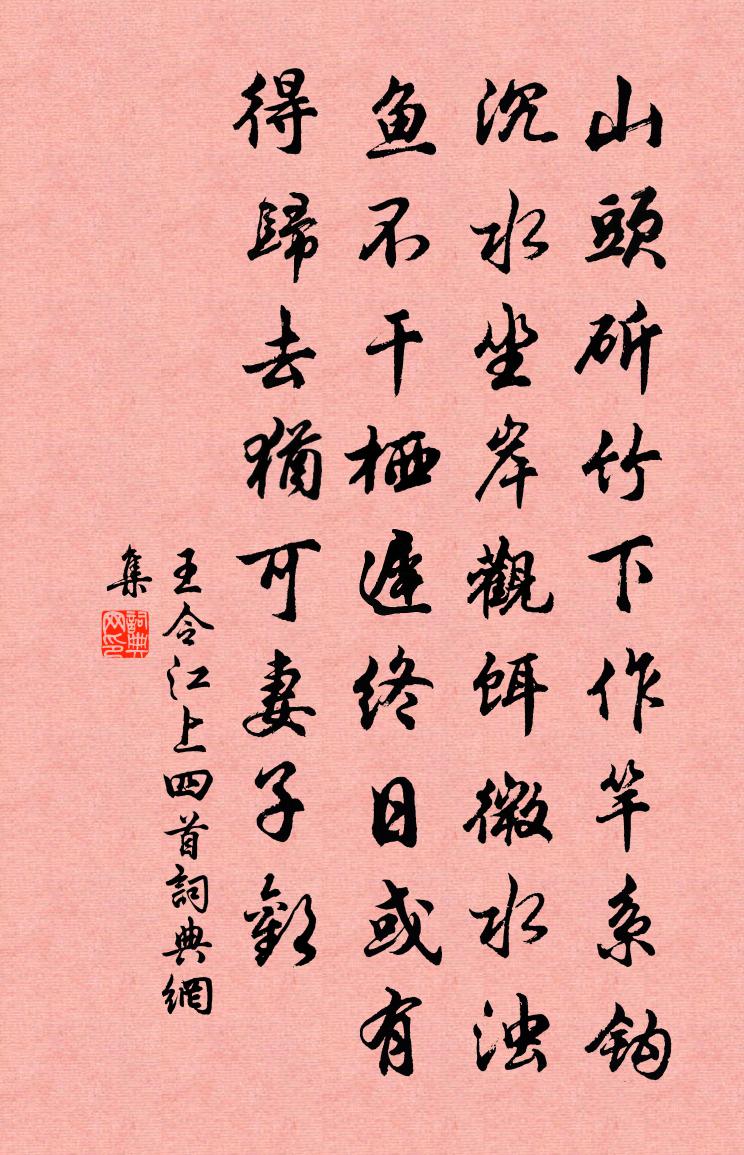 山頭斫竹下作竿系鈎
沉水坐岸觀餌微水浊
鱼不干栖遲终日或有
得歸去猶可妻子歡
王令江上四首詞典網
集
詞典
网印